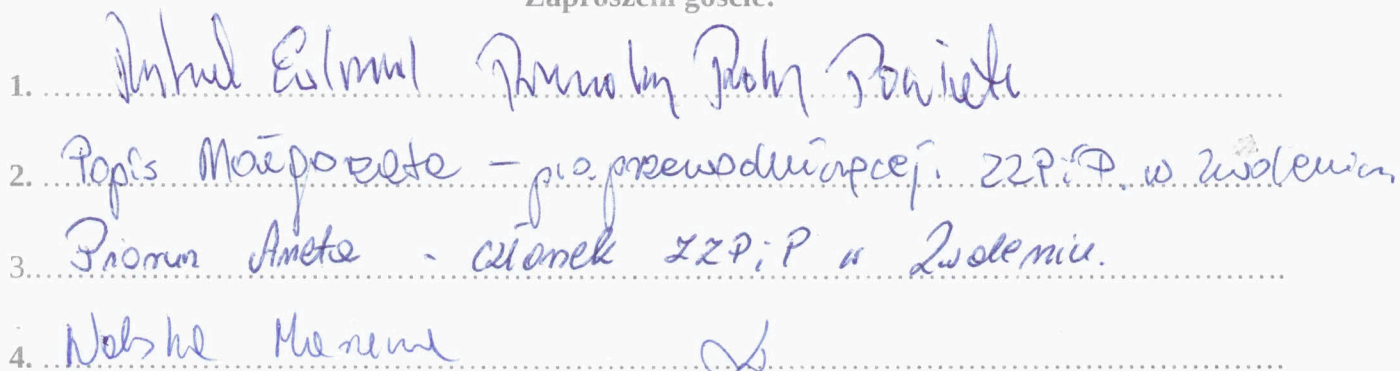 Zaproszeni goście:
1. Rady Powiatu
2. Popis Małgorzata – p.o. przewodniczącej ZZPiP. w Zwoleniu
3. Piorun Aneta - członek ZZPiP w Zwoleniu.
4. Wolska Marzena